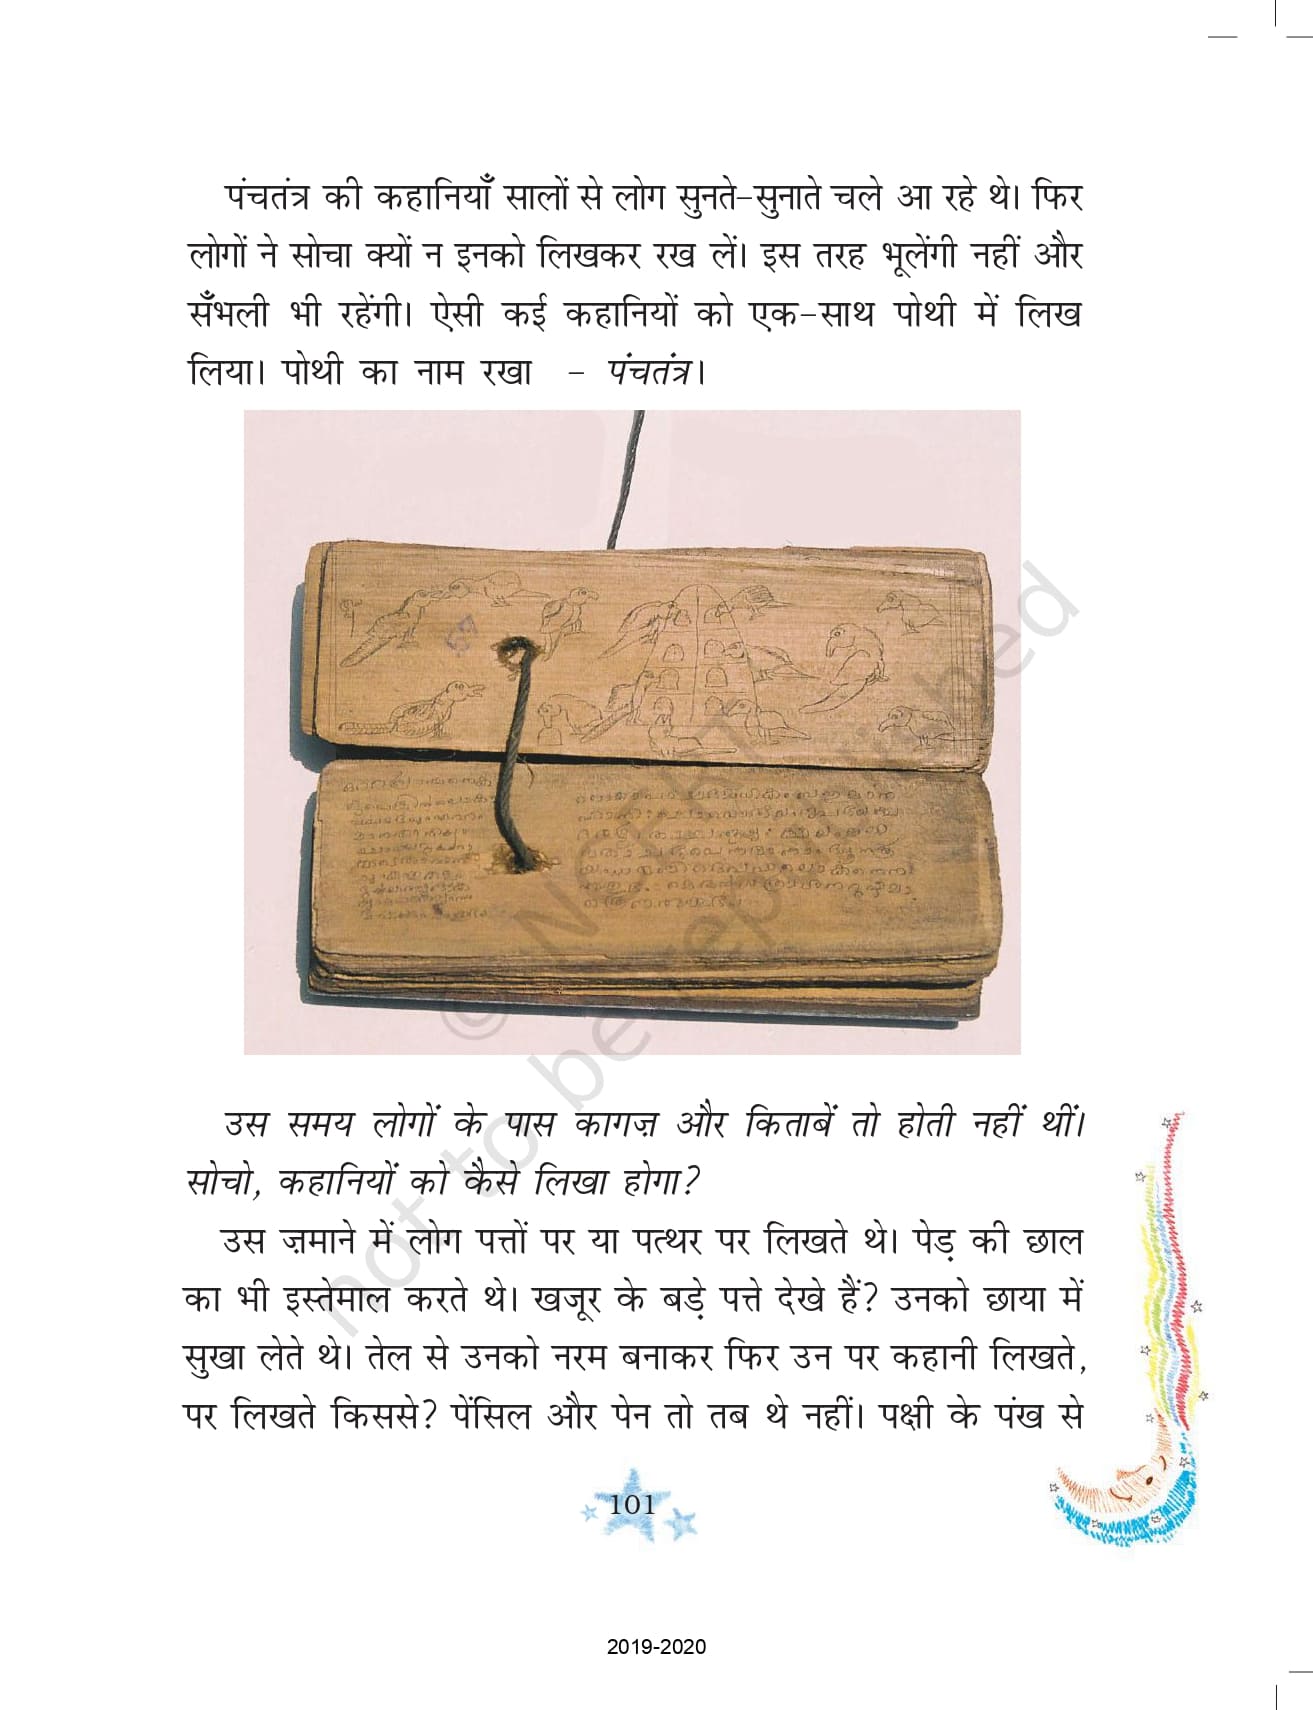 पंचतंत्र की कहानियाँ सालों से लोग सुनते-सुनाते चले आ रहे थे। फिर
लोगों ने सोचा क्यों न इनको लिखकर रख लें। इस तरह भूलेंगी नहीं और
सँभली भी रहेंगी। ऐसी कई कहानियों को एक-साथ पोथी में लिख
लिया। पोथी का नाम रखा - पंचतंत्र।
© NCERT
not to be republished
उस समय लोगों के पास कागज़ और किताबें तो होती नहीं थीं।
सोचो, कहानियों को कैसे लिखा होगा?
उस ज़माने में लोग पत्तों पर या पत्थर पर लिखते थे। पेड़ की छाल
का भी इस्तेमाल करते थे। खजूर के बड़े पत्ते देखे हैं? उनको छाया में
सुखा लेते थे। तेल से उनको नरम बनाकर फिर उन पर कहानी लिखते,
पर लिखते किससे? पेंसिल और पेन तो तब थे नहीं। पक्षी के पंख से
101
2019-2020